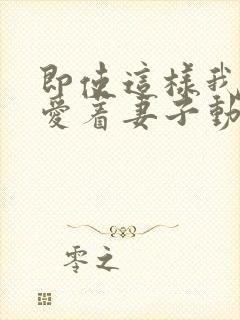 即使這樣我
愛着妻子動
零之